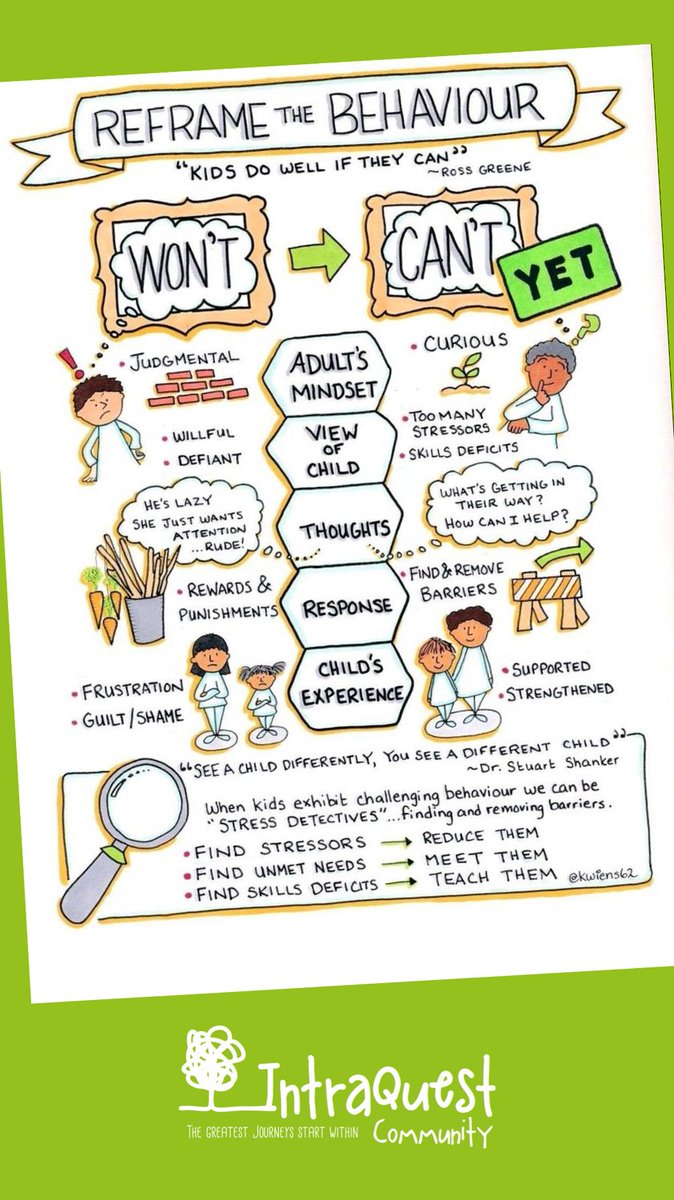 REFRAME THE BEHAVIOUR
"KIDS DO WELL IF THEY CAN"
~ROSS GREENE
WON'T
CAN'T
YET
• JUDGMENTAL
ADULT'S
MINDSET
• CURIOUS
• WILLFUL
• DEFIANT
VIEW
OF
CHILD
• TOO MANY
STRESSORS
• SKILLS DEFICITS
HE'S LAZY
SHE JUST WANTS
ATTENTION
...RUDE!
THOUGHTS
WHAT'S GETTING IN
THEIR WAY?
HOW CAN I HELP?
• REWARDS &
PUNISHMENTS
RESPONSE
• FIND & REMOVE
BARRIERS
• FRUSTRATION
• GUILT/SHAME
CHILD'S
EXPERIENCE
• SUPPORTED
• STRENGTHENED
"SEE A CHILD DIFFERENTLY, YOU SEE A DIFFERENT CHILD"
~Dr. Stuart Shanker
When kids exhibit challenging behaviour we can be
"STRESS DETECTIVES"...finding and removing barriers.
• FIND STRESSORS → REDUCE THEM
• FIND UNMET NEEDS → MEET THEM
• FIND SKILLS DEFICITS → TEACH THEM @kwiens62
IntraQuest
THE GREATEST JOURNEYS START WITHIN Community